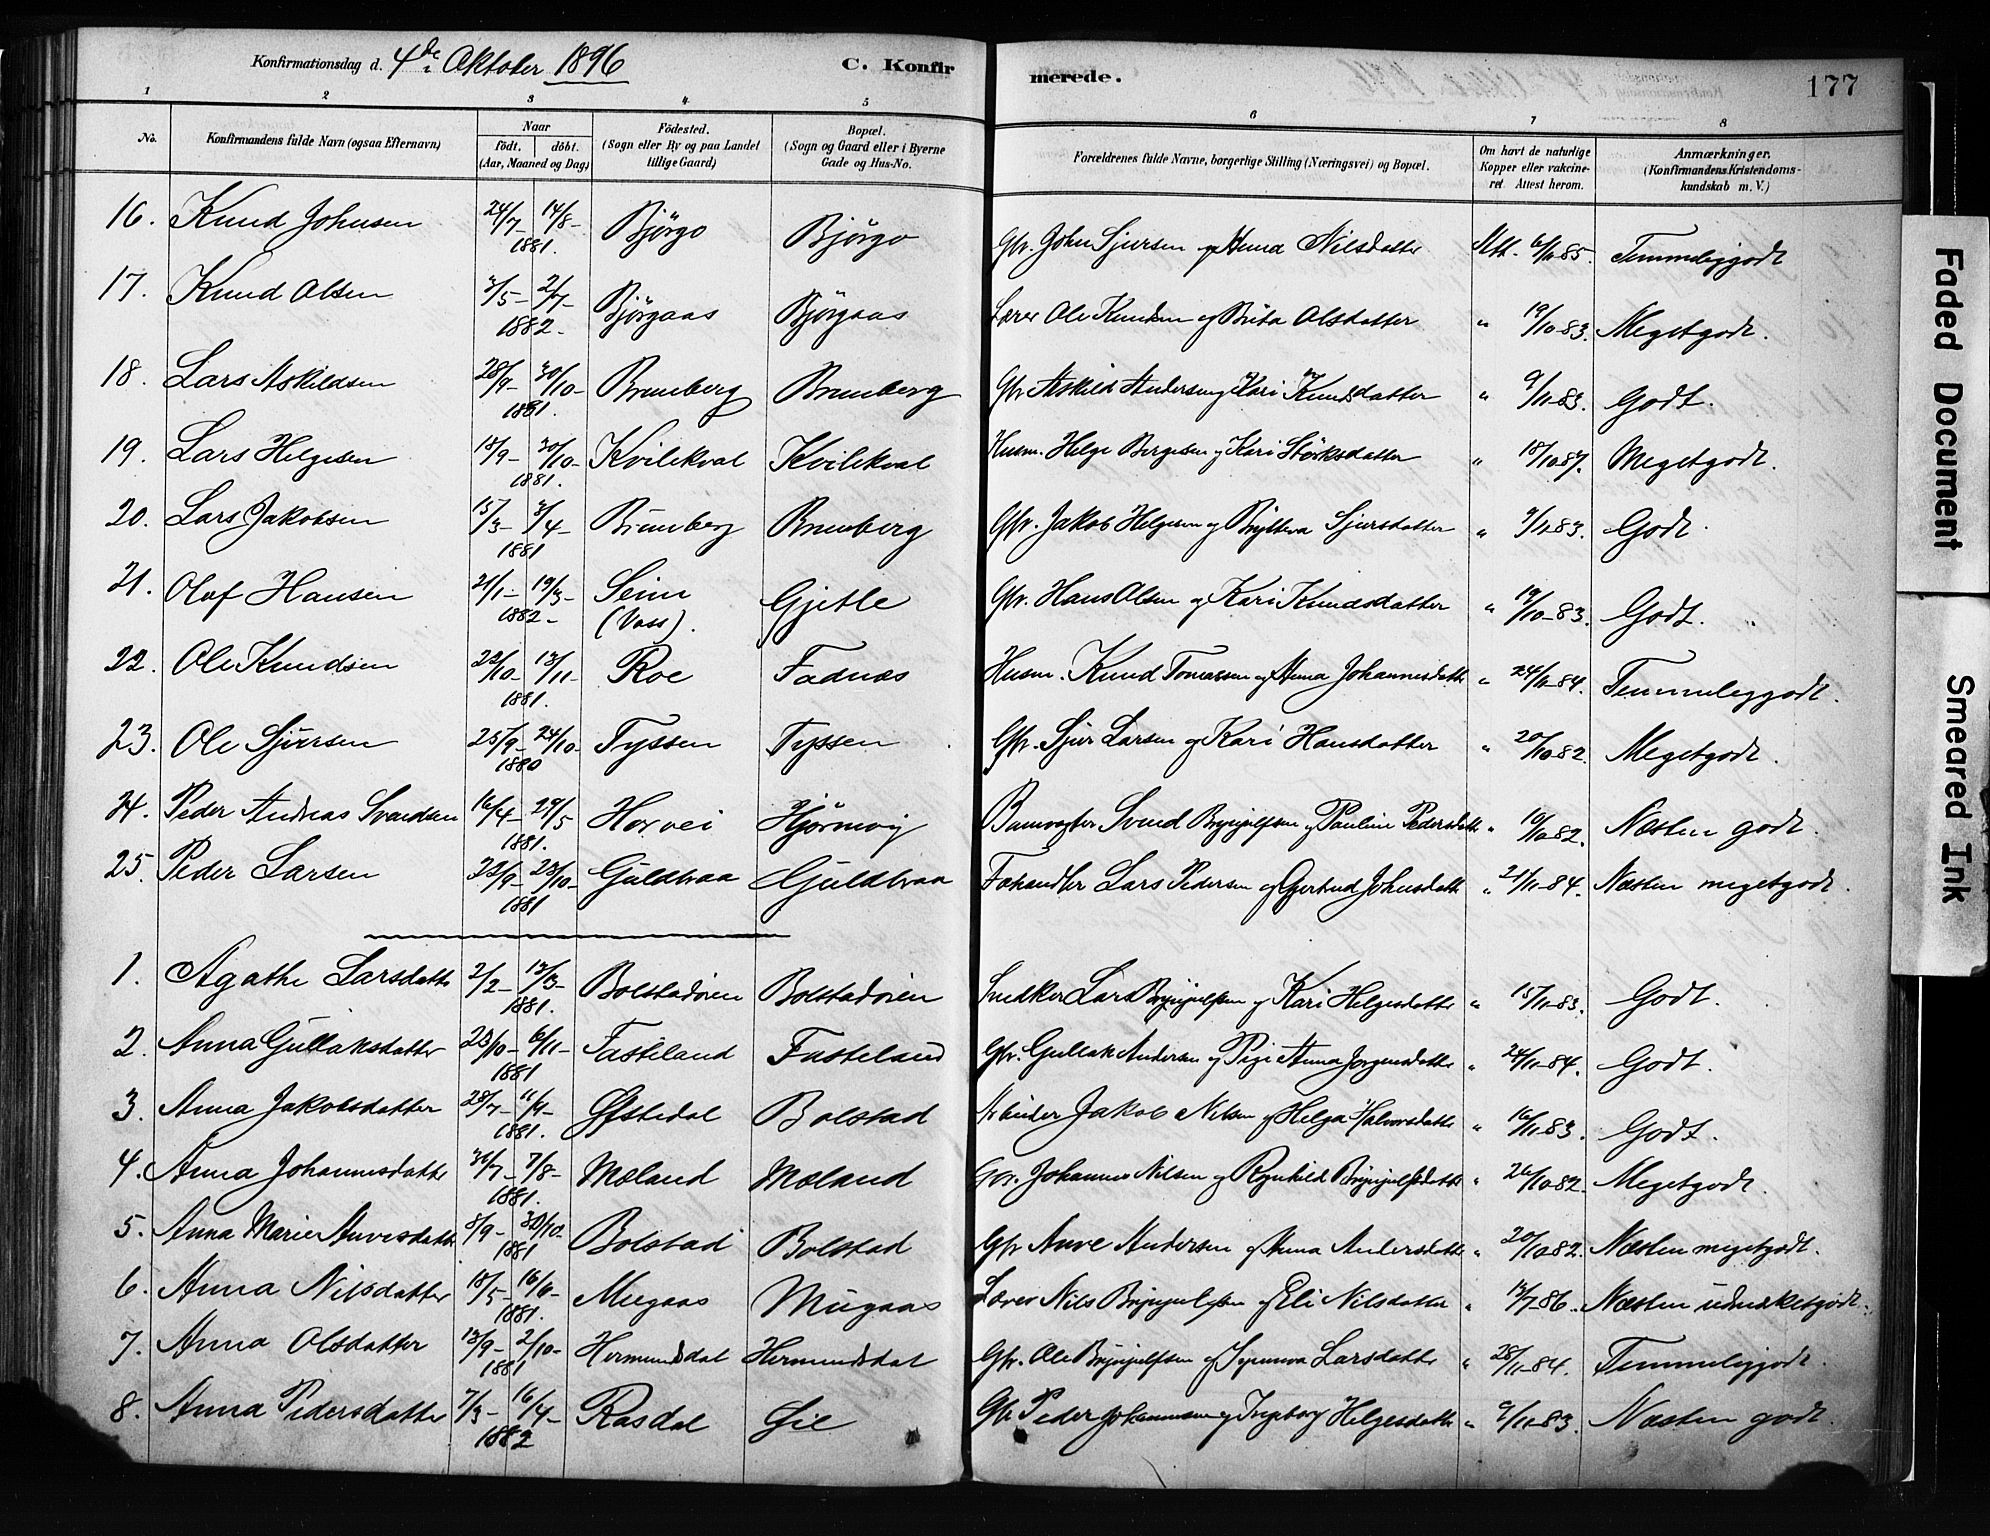 Konfirmationsdag d. 4de Oktober 1896 C. Konfirmerede. 177
1 2 3 4 5 6 7 8
No. Konfirmandens fulde Navn (ogsaa Efternavn) Naar födt. döbt. (Aar, Maaned og Dag) Födested. (Sogn eller By og paa Landet tillige Gaard) Bopæl. (Sogn og Gaard eller i Byerne Gade og Hus-No.) Forældrenes fulde Navne, borgerlige Stilling (Næringsvei) og Bopæl. Om havt de naturlige Kopper eller vakcineret. Attest herom. Anmærkninger. (Konfirmandens Kristendomskundskab m. V.)
16. Knud Johnsen 24/7- 14/8- 1881. Bjørgo Bjørgo Gbr. John Sjursen og Anna Nilsdatter Att. 6/11-85. Temmeliggodt
17. Knud Olsen 3/5- 2/7- 1882- Bjørgaas Bjørgaas Lærer Ole Knudsen og Brita Olsdatter " 19/10-83. Megetgodt.
18. Lars Askildsen 28/9- 30/10- 1881. Brunberg Brunberg Gbr Askild Andersen og Kari Knudsdatter " 9/11-83. Godt.
19. Lars Helgesen 18/9- 30/10- 1881. Kvilekval Kvilekval Husm. Helge Bergesen og Kari Størksdatter " 18/10-87. Megetgodt.
20. Lars Jakobsen 15/3- 3/4- 1881 Brunberg Brunberg Gbr. Jakob Helgesen og Brytteva Sjursdatter " 9/11-83. Godt.
21. Olaf Hansen 21/1- 19/3- 1882- Seim (Voss). Gjetle Gbr. Hans Olsen og Kari Knudsdatter " 19/10-83. Godt.
22. Ole Knudsen 22/10- 13/11- 1881. Roe Fadnæs Husm. Knud Tomassen og Anna Johannesdatte " 24/11-84. Temmeliggodt.
23. Ole Sjursen 25/9- 24/10- 1880 Tyssen Tyssen Gbr. Sjur Larsen og Kari Hansdatter " 20/10-82. Megetgodt.
24. Peder Andreas Svendsen 16/4- 29/5 1881. Horvei Hjørnevig Banevogter Svend Brynjulfsen og Pauline Pedersdatt. " 10/10-82. Næsten godt.
25. Peder Larsen 22/9- 23/10- 1881 Guldbraa Guldbraa Fæhandler Lars Pedersen og Gjertrud Johnsdatte " 21/11-84. Næsten megetgodt.
1. Agathe Larsdatte 2/2- 13/3- 1881. Bolstadøien Bolstadøien Snedker Lars Brynjulfsen og Kari Helgesdatte " 15/11-83. Godt.
2. Anna Gullaksdatter 23/10- 6/11- 1881 Fasteland Fasteland Gbr. Gullak Andersen og Pige Anna Jørgensdatte " 24/11-84. Godt.
3. Anna Jakobsdatter 28/7- 11/9- 1881. Øfstedal Bolstad Arbeider Jakob Nilsen og Helga Halvorsdatte " 16/11-83. Godt.
4. Anna Johannesdatter 31/7- 7/8- 1881. Mæland Mæland Gbr. Johannes Nilsen og Ragnhild Brynjulfsdatte " 26/10-82. Megetgodt.
5. Anna Marie Anvesdatte 8/9- 30/10- 1881 Bolstad Bolstad Gbr Anve Andersen og Anna Andersdatte " 20/10-82. Næsten megetgodt.
6. Anna Nilsdatter 18/5- 16/6- 1881. Mugaas Mugaas Lærer Nils Brynjulfsen og Eli Nilsdatter " 13/7-86. Næsten udmerketgodt.
7. Anna Olsdatter 13/9- 2/10- 1881 Hermundsdal Hermundsdal Gbr. Ole Brynjulfsen og Synneva Larsdatte " 28/11-84. Temmeliggodt.
8. Anna Pedersdatter 7/3- 16/4- 1882 Rasdal Øie Gbr Peder Johannesen og Ingeborg Helgesdatte " 9/11-83. Næsten godt.
Faded Document
Smeared Ink